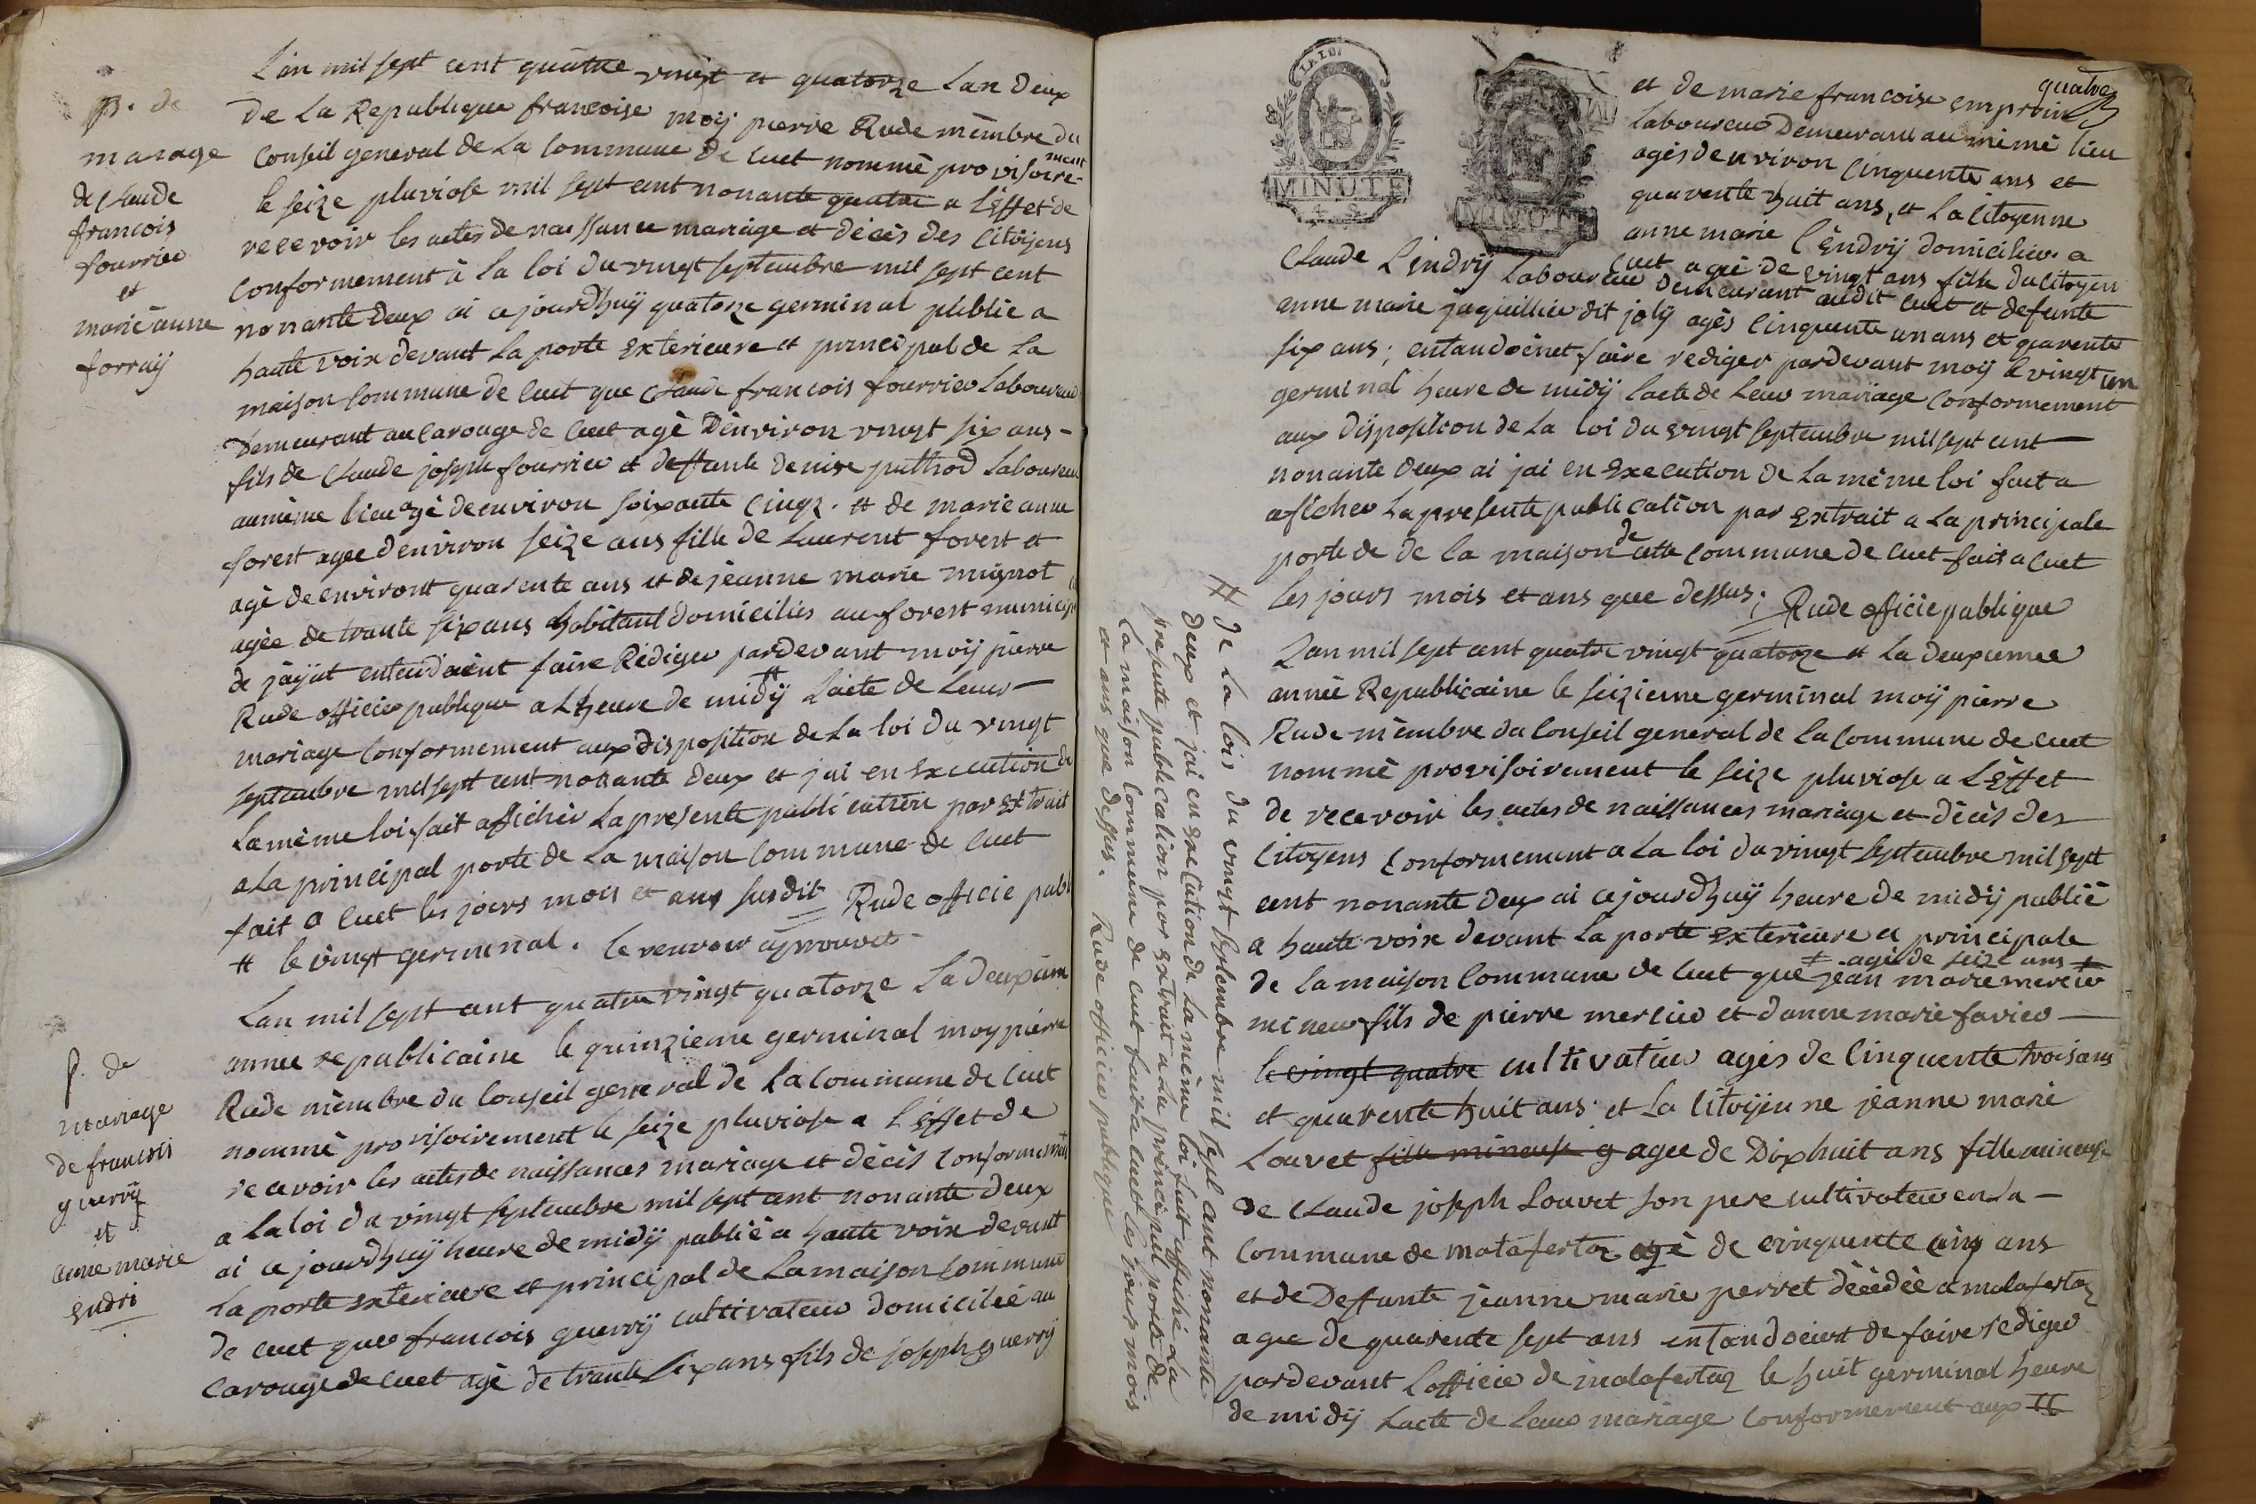 p. de
mariage
de Claude
francois
fourrier
et
marie anne
forray
Lan mil sept cent quatre vingt et quatorze Lan Deux
De La Republique francoise moy pierre Rude mèmbre du
Conseil general de La Commune de Cuet nommè provisoire-
ment
le seize pluviose mil sept cent nonante quatre a LEffet de
recevoir les actes de naissance mariage et décès des Citoyens
Conformement à La loi du vingt septembre mil sept cent
nonante deux ai cejourdhuÿ quatorze germinal publié a
haute voix devant La porte Exterieure et principal de La
maison Commune de Cuet que Claude francois fourrier Laboureur
Demeurant au Carouge de Cuet agè D'environ vingt six ans -
fils de Claude joseph fourrier et deffunte Denise puthod Laboureur
au même lieu agè de environ soixante Cinq. et de marie anne
forest agee d'environ seize ans fille de Laurent forest et
agè de environt quarente ans et de jeanne marie mignot
agée de trante six ans habitant domiciliés au forest municip
de jäyat entendoient faire Rédiger pardevant moÿ pierre
Rude officier publique a Lheure de midÿ # Lacte de Leur -
mariage Conformement aux Disposition de La loi du vingt
septembre mil sept cent nonante Deux et jai en Execution de
La même loi fait afficher La presente publication par Extrait
a La principal porte de La maison Commune de Cuet
fait a Cuet les jours mois et ans susdit Rude officie publ
# le vingt germinal. le renvoir aprouvés -
p. de
mariage
de francois
guerrÿ
et
anne marie
Endri
Lan mil sept cent quatre vingt quatorze La Deuxieme
annee republicaine le quinzieme germinal moy pierre
Rude mèmbre du Conseil general de La Commune de Cuet
nommè provisoirement le seize pluviose a l'Effet de
recevoir les actes de naissances mariage et décès Conformement
a La loi du vingt septembre mil sept cent nonante deux
ai cejourdhuÿ heure de midÿ publié a haute voix devant
La porte Exterieure et principal de La maison Commune
De Cuet que francois guerrÿ Cultivateur domicilié au
Carouge de Cuet agè de trante six ans fils de joseph guerrÿ
quatre
LA LOI
MINUTE
4. S.
et de marie francoise emprin
Laboureur Demeurant au mème lieu
agés denviron Cinquente ans et
quarente huit ans, et La Citoyenne
anne marie LEndrÿ domiciliée a
Cuet agée de vingt ans fille du Citoyen
Claude LEndrÿ Laboureur Demeurant audit Cuet et defunte
anne marie juquillier dit jolÿ agés Cinquente un ans et quarente
six ans; entandoinet faire rediger pardevant moÿ le vingt un
germinal heure de midÿ lacte de Leur mariage Conformement
aux Disposition de La loi du vingt septembre mil sept cent
nonante deux ai jai en Execution de La même loi fait a
aficher La presente publication par Extrait a La principale
porte de de la maison de cette Commune de Cuet fait a Cuet
les jours mois et ans que dessus. Rude officie publique
Lan mil sept cent quatre vingt quatorze et La deuxiemee
année Republicaine le seizieme germinal moÿ pierre
Rude mèmbre du Conseil general de La Commune de Cuet
nommè provisoirement le seize pluviose a LEffet
de recevoir les actes de naissances mariage et décès des
Citoyens Conformement a La loi du vingt septembre mil sept
cent nonante Deux ai cejourdhuÿ heure de midÿ publiè
a haute voix devant La porte Exterieure et principale
de la maison Commune de Cuet que jean marie mercier
# agé de seize ans #
mineur fils de pierre mercier et danne marie favier
le vingt quatre cultivateur agés de Cinquente trois ans
et quarente huit ans et La Citoÿenne jeanne marie
Louvet fille mineuse g agee de Dix huit ans fille mineuse
De Claude joseph Louvet son pere cultivateur en La -
Commune de malafertaz agè de cinquente cinq ans
et de Deffunte jeanne marie perret dècèdèe a malafertaz
agee de quarente sept ans entandoient de faire rediger
pardevant Lofficie de malafertaz le huit germinal heure
de midÿ Lacte de Leur mariage Conformement aux #
# De La lois du vingt septembre mil sept cent nonante
deux et jai en execution de La même loi fait affiché La
presente publication par Extrait a La principal porte de
La maison Commune de Cuet fait a Cuet les jours mois
et ans que dessus. Rude officier publique